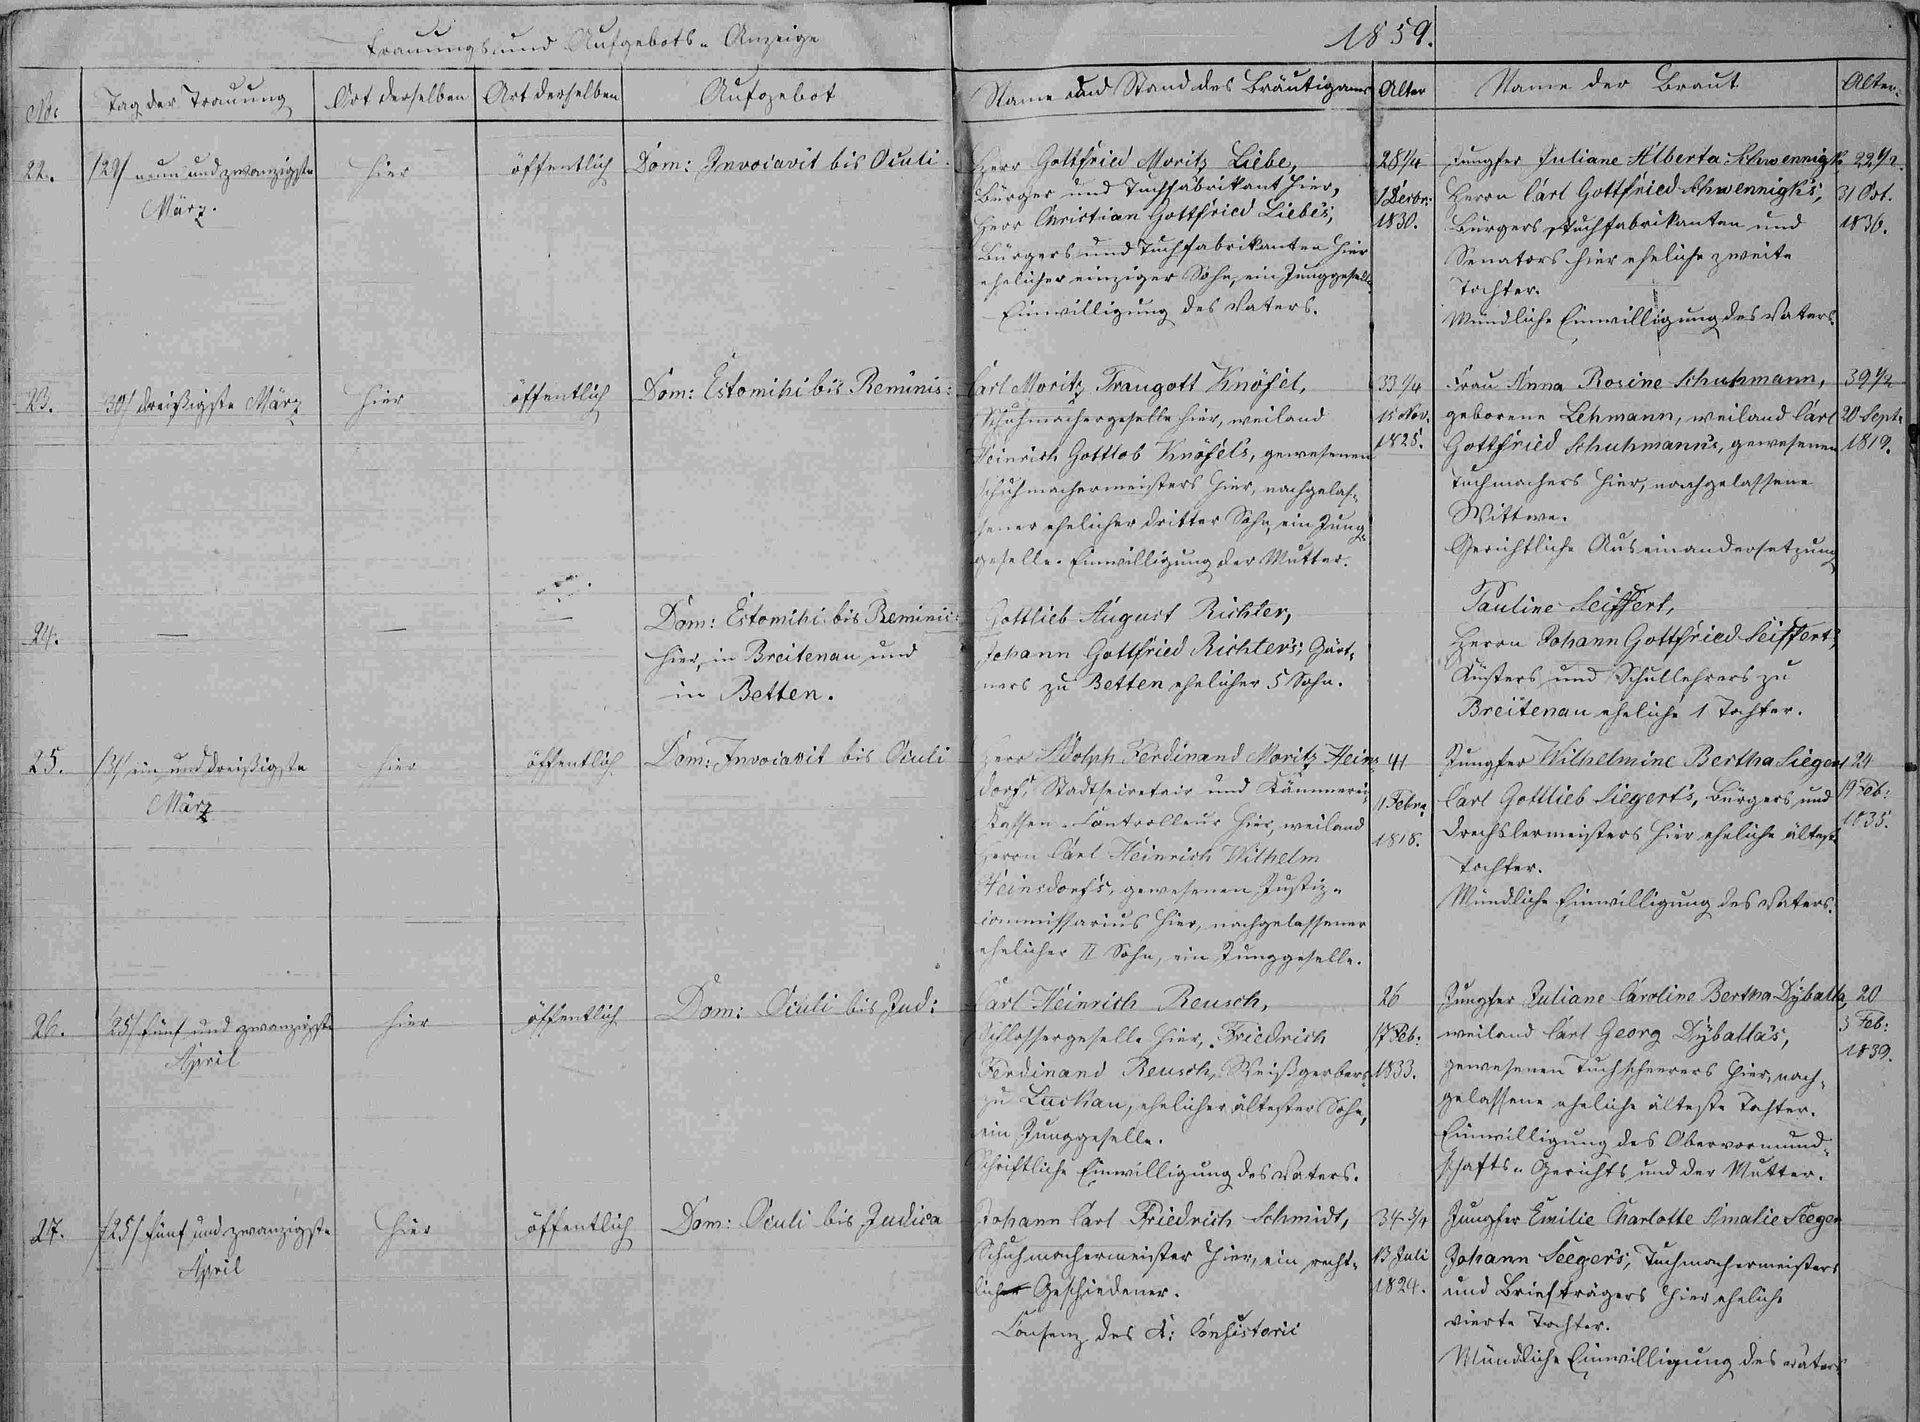 Trauungs und Aufgebots-Anzeige
1859.
No: Tag der Trauung Ort derselben Art derselben Aufgebot Name und Stand des Bräutigams Alter Name der Braut Alter.
22. /29/ neun und zwanzigste
März.
hier
öffentlich
Dom: Invocavit bis Oculi.
Herr Gottfried Moritz Liebe,
Bürger und Tuchfabrikant hier,
Herr Christian Gottfried Liebe's,
Bürgers und Tuchfabrikanten hier
ehelicher einziger Sohn, ein Junggeselle
Einwilligung des Vaters.
28 1/4
1 Decbr:
1830.
Jungfer Juliane Alberta Schwennigk
Herrn Carl Gottfried Schwennigk's,
Bürgers Tuchfabrikanten und
Senators hier eheliche zweite
Tochter.
Mündliche Einwilligung des Vaters.
22 1/2
31 Oct.
1836.
23. 30/ dreißigste März
hier
öffentlich
Dom: Estomihi bis Reminis:
Carl Moritz Traugott Knöfel,
Schuhmachergeselle hier, weiland
Heinrich Gottlob Knöfel's, gewesenen
Schuhmachermeisters hier, nachgelas-
sener ehelicher dritter Sohn, ein Jung-
geselle. Einwilligung der Mutter.
33 1/4
15 Nov.
1825.
Frau Anna Rosine Schuhmann,
geborene Lehmann, weiland Carl
Gottfried Schuhmann's, gewesenen
Tuchmachers hier, nachgelassene
Wittwe.
Gerichtliche Auseinandersetzung
39 1/2
20 Sept:
1819.
24. — —
Dom: Estomihi bis Reminis:
hier, in Breitenau und
in Betten.
Gottlieb August Richter,
Johann Gottfried Richter's, Gärt-
ners zu Betten ehelicher 5 Sohn.
Pauline Seiffert,
Herrn Johann Gottfried Seiffert's,
Küsters und Schullehrers zu
Breitenau eheliche 1 Tochter.
25. /31/ ein und dreißigste
März
hier
öffentlich.
Dom: Invocavit bis Oculi
Herr Adolph Ferdinand Moritz Heins-
dorf, Stadtsecretair und Kämmerei-
Kassen-Controlleur hier, weiland
Herrn Carl Heinrich Wilhelm
Heinsdorf's, gewesenen Justiz-
commissarius hier, nachgelassener
ehelicher II Sohn, ein Junggeselle.
41
11 Febr.
1818.
Jungfer Wilhelmine Bertha Siegert
Carl Gottlieb Siegert's, Bürgers und
Drechslermeisters hier eheliche älteste
Tochter.
Mündliche Einwilligung des Vaters.
24
19 Feb:
1835.
26. /25/ fünf und zwanzigste
April
hier
öffentlich
Dom: Oculi bis Jud:
Carl Heinrich Reusch,
Schlossergeselle hier, Friedrich
Ferdinand Reusch, Weißgerbers
zu Luckau, ehelicher ältester Sohn,
ein Junggeselle.
Schriftliche Einwilligung des Vaters.
26
17 Feb:
1833.
Jungfer Juliane Caroline Bertha Dyballa,
weiland Carl Georg Dyballa's,
gewesenen Tuchscheerers hier, nach-
gelassene eheliche älteste Tochter.
Einwilligung des Obervormund-
schafts-Gerichts und der Mutter.
20
3 Feb:
1839.
27. /25/ fünf und zwanzigste
April
hier
öffentlich
Dom: Oculi bis Judica
Johann Carl Friedrich Schmidt,
Schuhmachermeister hier, ein recht-
lich Geschiedener.
Consenz des K: Consistorii
34 3/4
13 Juli
1824.
Jungfer Emilie Charlotte Amalie Seeger
Johann Seeger's, Tuchmachermeisters
und Briefträgers hier eheliche
vierte Tochter.
Mündliche Einwilligung des Vaters